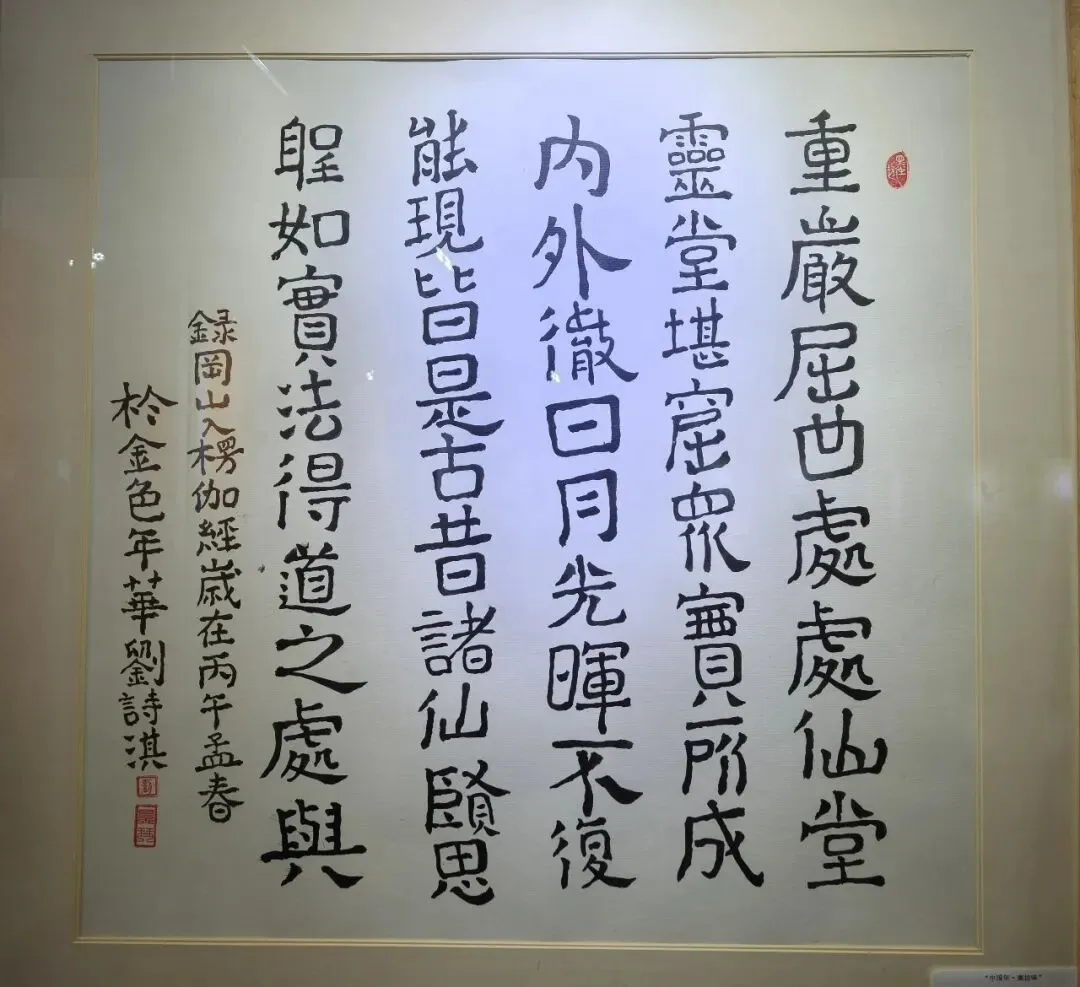 重巖屈曲處處仙堂
靈堂堪窟衆寶所成
內外徹日月光暉不復
能現皆是古昔諸仙賢思
聖如實法得道之處與
錄岡山入楞伽經歲在丙午孟春
於金色年華劉詩淇